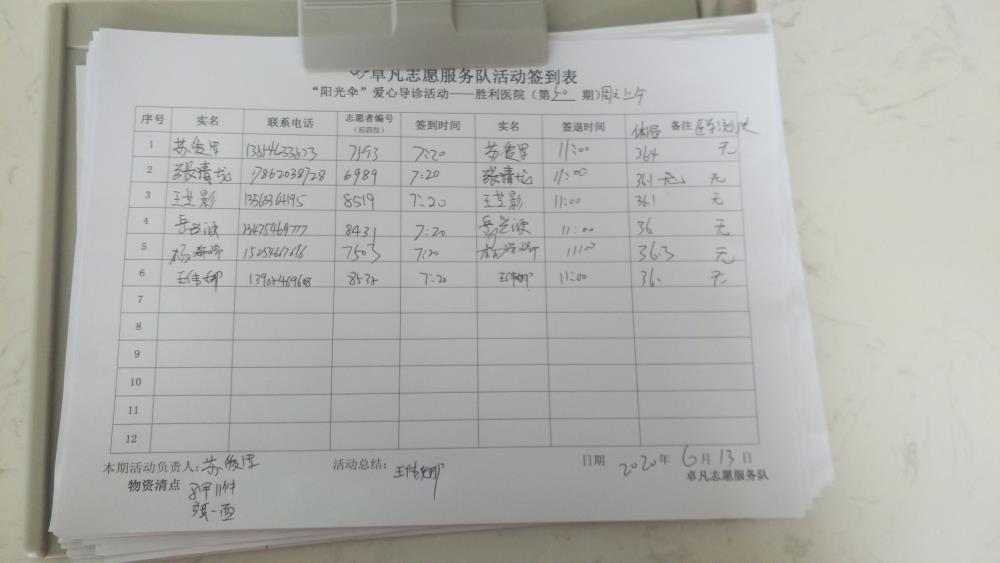 卓凡志愿服务队活动签到表
“阳光伞”爱心导诊活动——胜利医院（第50期）周六上午
序号 实名 联系电话 志愿者编号（后四位） 签到时间 实名 签退时间 体温 备注
1 苏俊厚 7193 7:20 苏俊厚 11:00 364 无
2 张清龙 17862038728 6989 7:20 张清龙 11:00 36.1 无
3 8519 7:20 11:00 36.1 无
4 13475469777 8431 7:20 11:00 36 无
5 杨 7503 7:20 杨 11:00 36.3 无
6 王伟娜 7:20 王伟娜 11:00 36. 无
7
8
9
10
11
12
本期活动负责人：苏俊厚 活动总结：王伟娜 日期 2020年6月13日
物资清点 11件 卓凡志愿服务队
一面